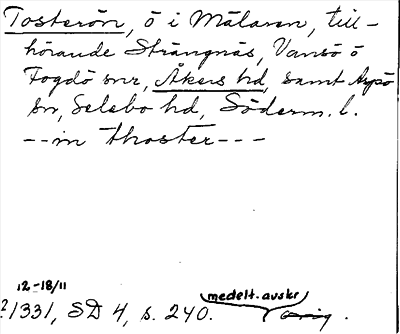 Tosterön, ö i Mälaren, till-
hörande Strängnäs, Vansö o
Fogdö snr, Åkers hd, samt Aspö
sn, Selebo hd, Söderm. l.
--in thoster---
12-18/11
medelt. avskr
?1331, SD 4, s. 240. orig.